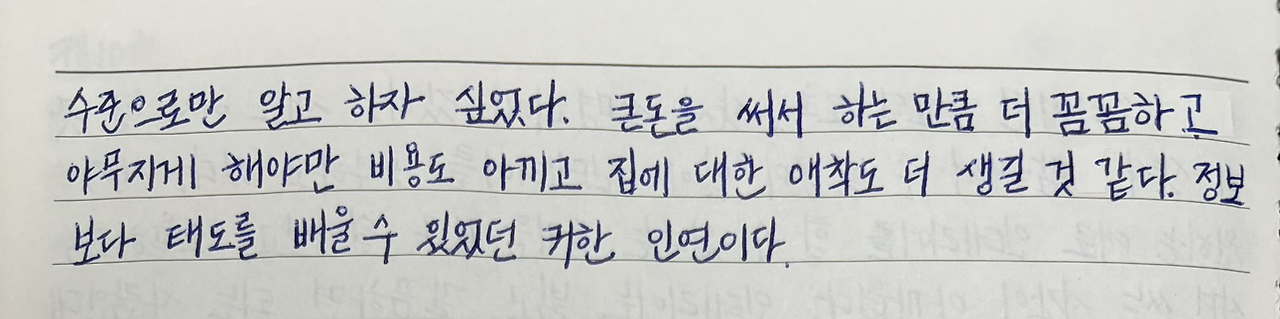 수준으로만 알고 하자 싶었다. 큰돈을 써서 하는 만큼 더 꼼꼼하고
야무지게 해야만 비용도 아끼고 집에 대한 애착도 더 생길 것 같다. 정보
보다 태도를 배울 수 있었던 귀한 인연이다.